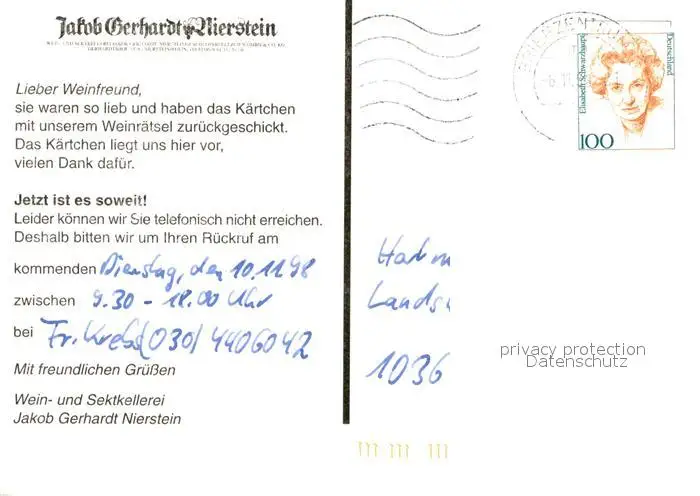 Jakob Gerhardt Nierstein
Lieber Weinfreund,
sie waren so lieb und haben das Kärtchen
mit unserem Weinrätsel zurückgeschickt.
Das Kärtchen liegt uns hier vor,
vielen Dank dafür.
Jetzt ist es soweit!
Leider können wir Sie telefonisch nicht erreichen.
Deshalb bitten wir um Ihren Rückruf am
kommenden Dienstag, den 10.11.98
zwischen 9.30 - 18.00 Uhr
bei Fr. Krebs (030) 4406042
Mit freundlichen Grüßen
Wein- und Sektkellerei
Jakob Gerhardt Nierstein
BRIEFZENTRUM
Elisabeth Schwarzhaupt
Deutschland
100
1036
privacy protection
Datenschutz